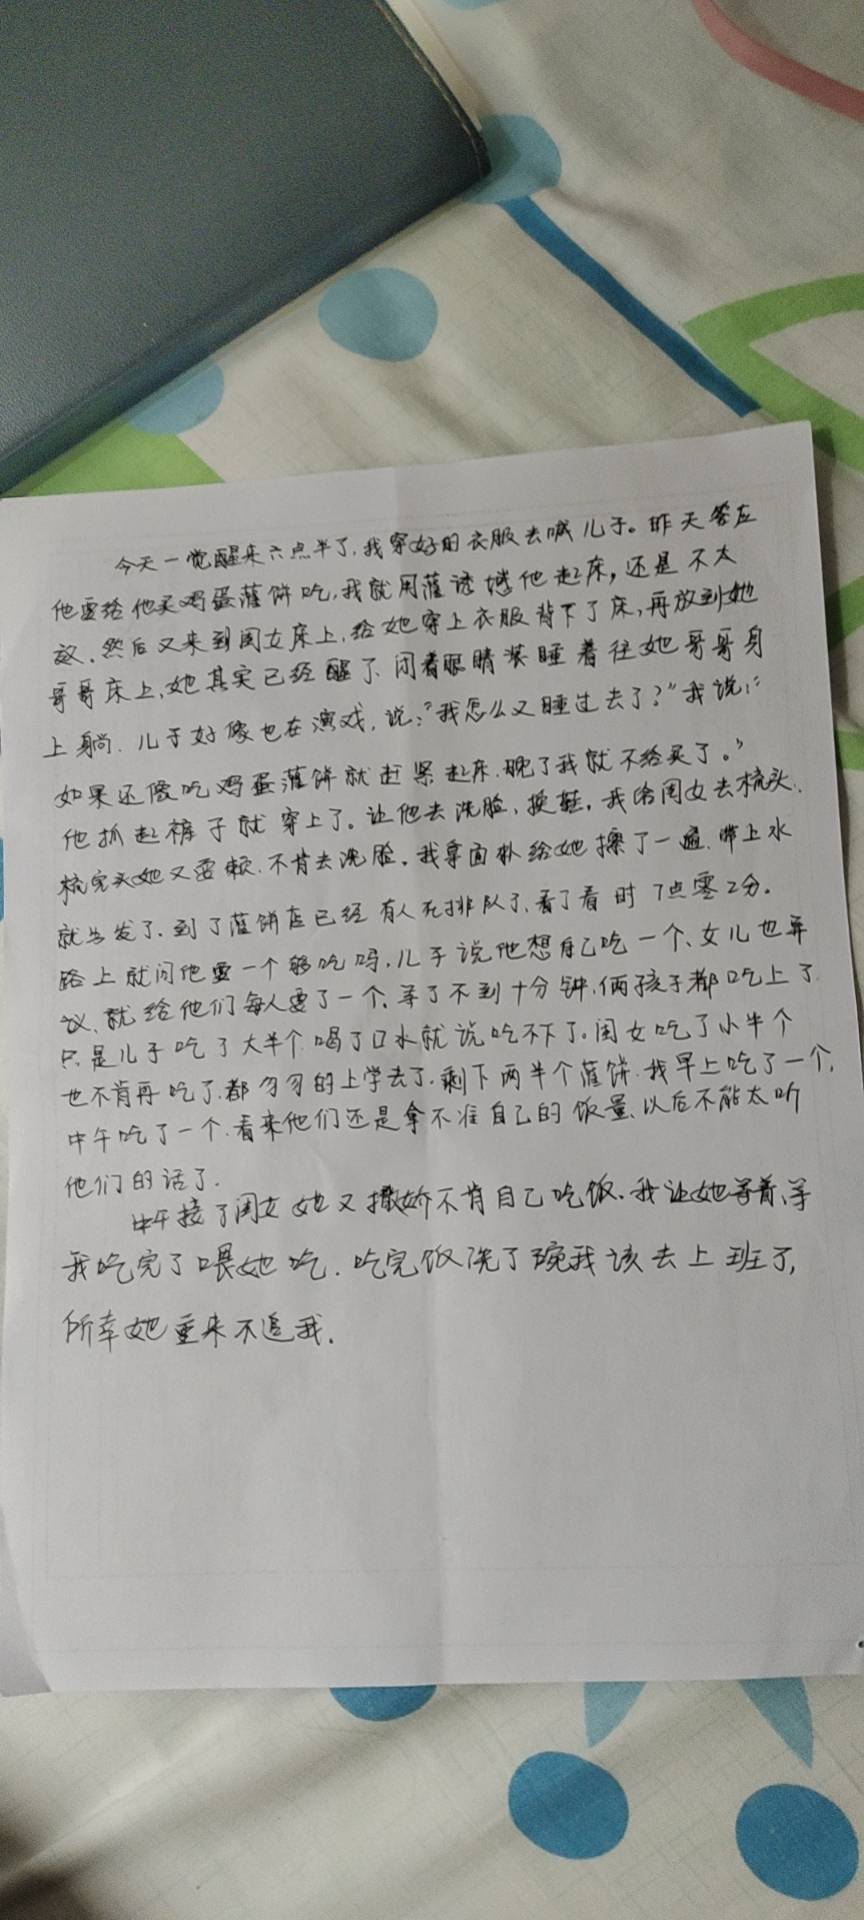 今天一觉醒来六点半了,我穿好的衣服去喊儿子。昨天答应
他要给他买鸡蛋灌饼吃,我就用灌诱他起床,还是不太
。然后又来到闺女床上,给她穿上衣服背下了床,再放到她
哥哥床上,她其实已经醒了、闭着眼睛装睡着往她哥哥身
上躺.儿子好像也在演戏,说:"我怎么又睡过去了?"我说:"
如果还像吃鸡蛋灌饼就赶紧起床.晚了我就不给买了。"
他抓起裤子就穿上了。让他去洗脸、换鞋,我给闺女去梳头、
梳完头她又耍赖.不肯去洗脸。我拿面扑给她擦了一遍.带上水
就出发了.到了灌饼店已经有人在排队了、看了看时7点零2分。
路上就问他要一个够吃吗.儿子说他想自己吃一个、女儿也
议、就给他们每人要了一个.等了不到十分钟.俩孩子都吃上了.
只是儿子吃了大半个.喝了口水就说吃不下了。闺女吃了小半个
也不肯再吃了.都匆匆的上学去了.剩下两半个灌饼.我早上吃了一个,
中午吃了一个.看来他们还是拿不准自己的饭量、以后不能太听
他们的话了.
中午接了闺女她又撒娇不肯自己吃饭.我让她等着、等
我吃完了喂她吃.吃完饭洗了碗我该去上班了,
所幸她重来不追我.